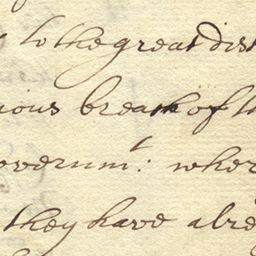 to the great dist
ious breach of th
overnm^t: wher
they have alre